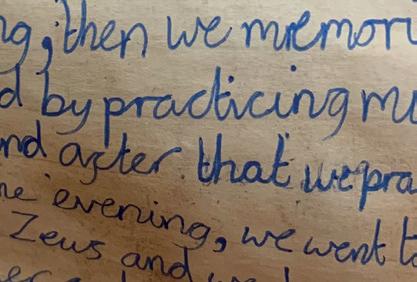 ng, then we memori
d by practicing mu
nd after that we pra
ne evening, we went to
Zeus and